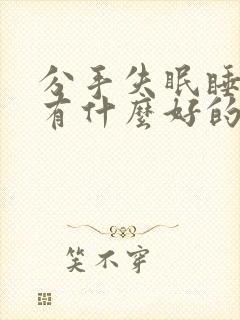 分手失眠睡
有什麼好的
笑不穿